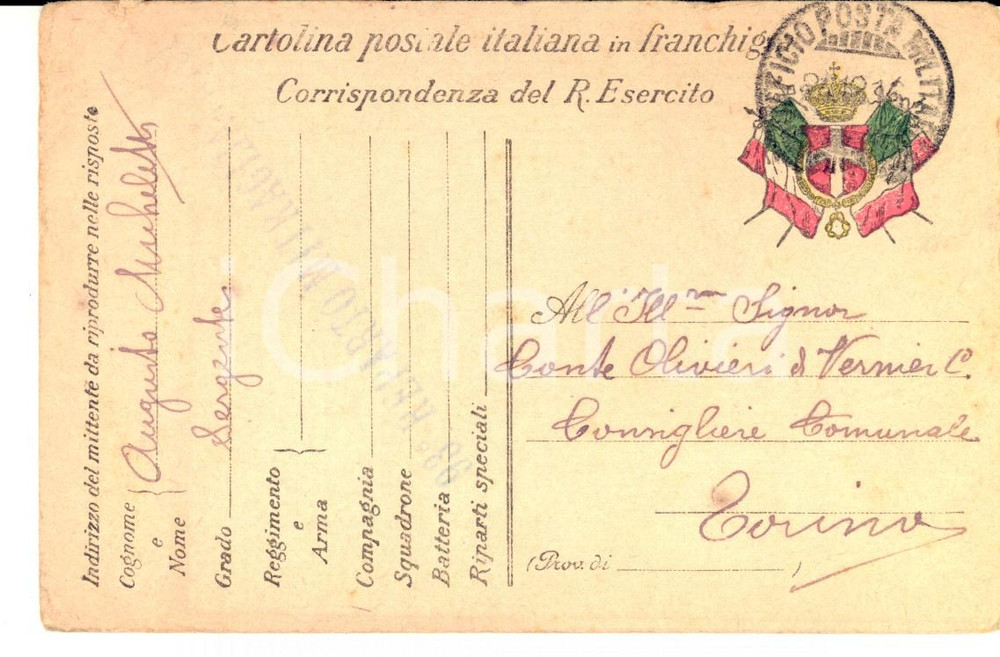 Cartolina postale italiana in franchig
Corrispondenza del R. Esercito
UFFICIO POSTA MILITARE
Indirizzo del mittente da riprodurre nelle risposte
Cognome e Nome { Augusto
Grado Sergente
Reggimento e Arma {
Compagnia
Squadrone
Batteria
Riparti speciali
93° REPARTO MITRAGLIA
All' Ill.mo Signor
Conte Olivieri di Vernier C.
Consigliere Comunale
Torino
(Prov. di )
iCharta